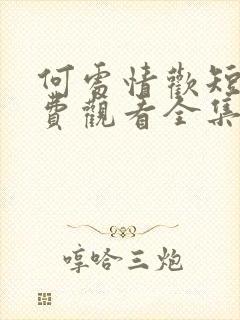 何處情歡短
費觀看全集
哼哈三炮